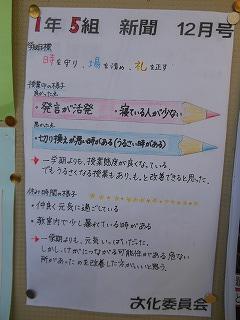 1年 5組 新聞 12月号
学級目標
時を守り、場を清め、礼を正す
授業中の様子
良かった点
・発言が活発 ・寝ている人が少ない
悪かった点
・切り換えが悪い時がある(うるさい時がある)
→一学期よりも、授業態度が良くなっている。
でもうるさくなる授業もあり、もっと改善できると思った。
休み時間の様子
・仲良く元気に過ごしている
・教室内で少し暴れている時がある
→一学期よりも、元気いっぱいだった。
しかし、けがにつながる可能性がある危ない
所があったため改善した方がいいと思う。
文化委員会